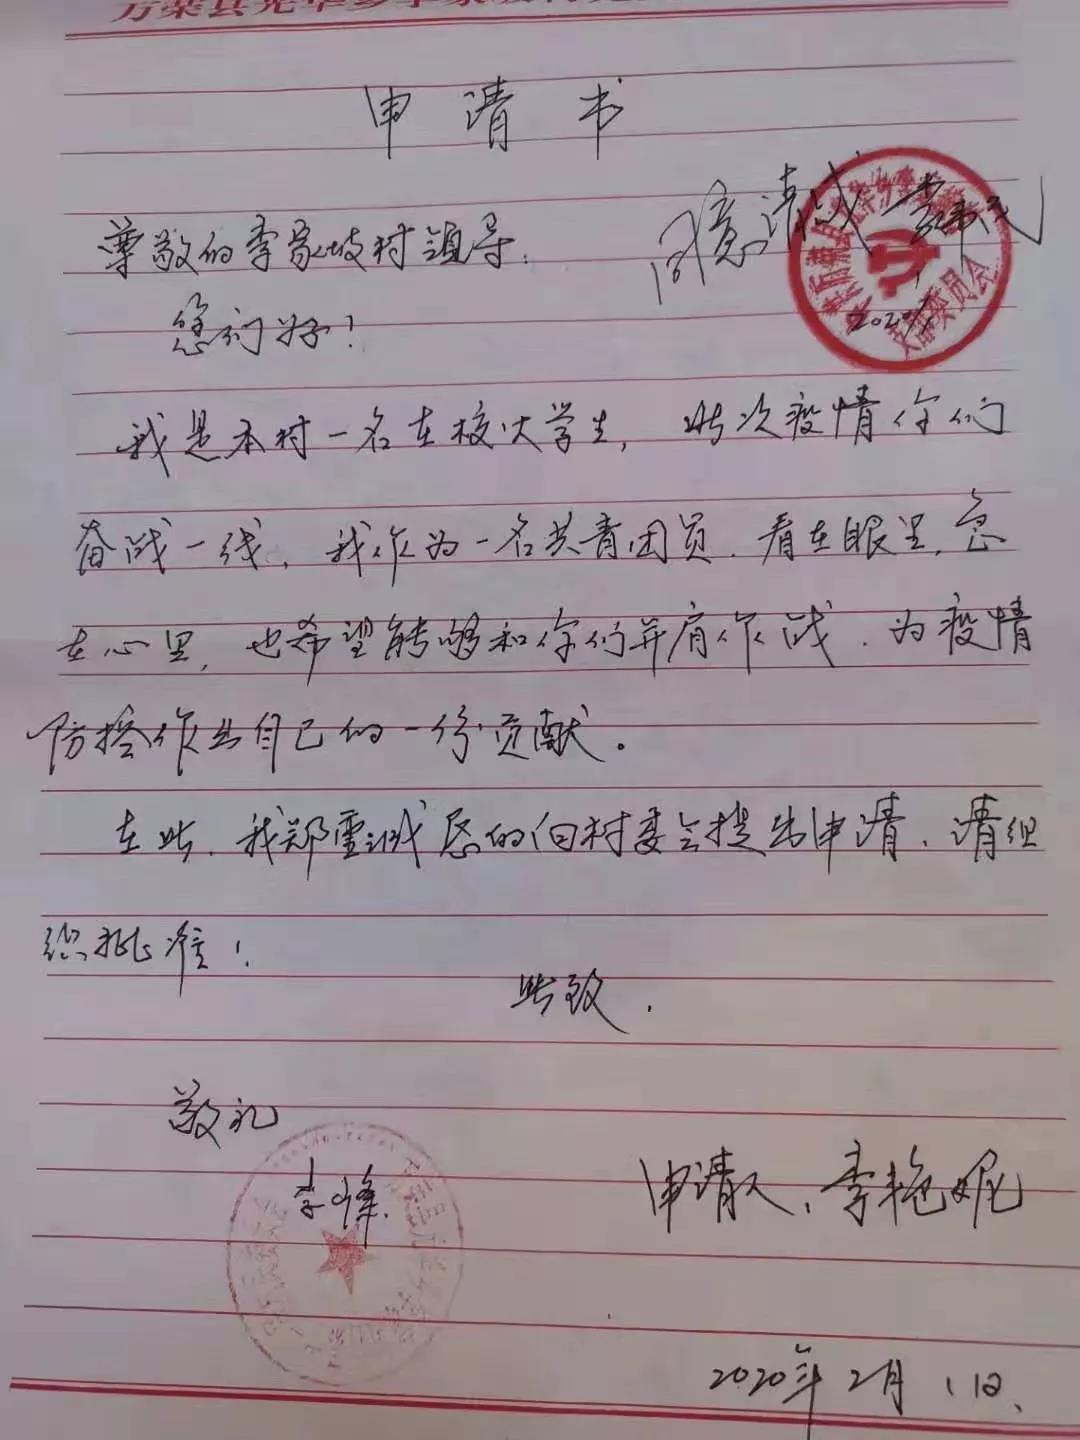 申请书
同意请战
尊敬的李家坡村领导.
您们好!
2020.
支部委员会
我是本村一名在校大学生, 此次疫情你们
奋战一线, 我作为一名共青团员, 看在眼里, 急
在心里, 也希望能够和你们并肩作战, 为疫情
防控作出自己的一份贡献。
在此, 我郑重诚恳的向村委会提出申请, 请组
织批准!
此致.
敬礼
李峰.
申请人, 李艳妮
2020年2月1日.